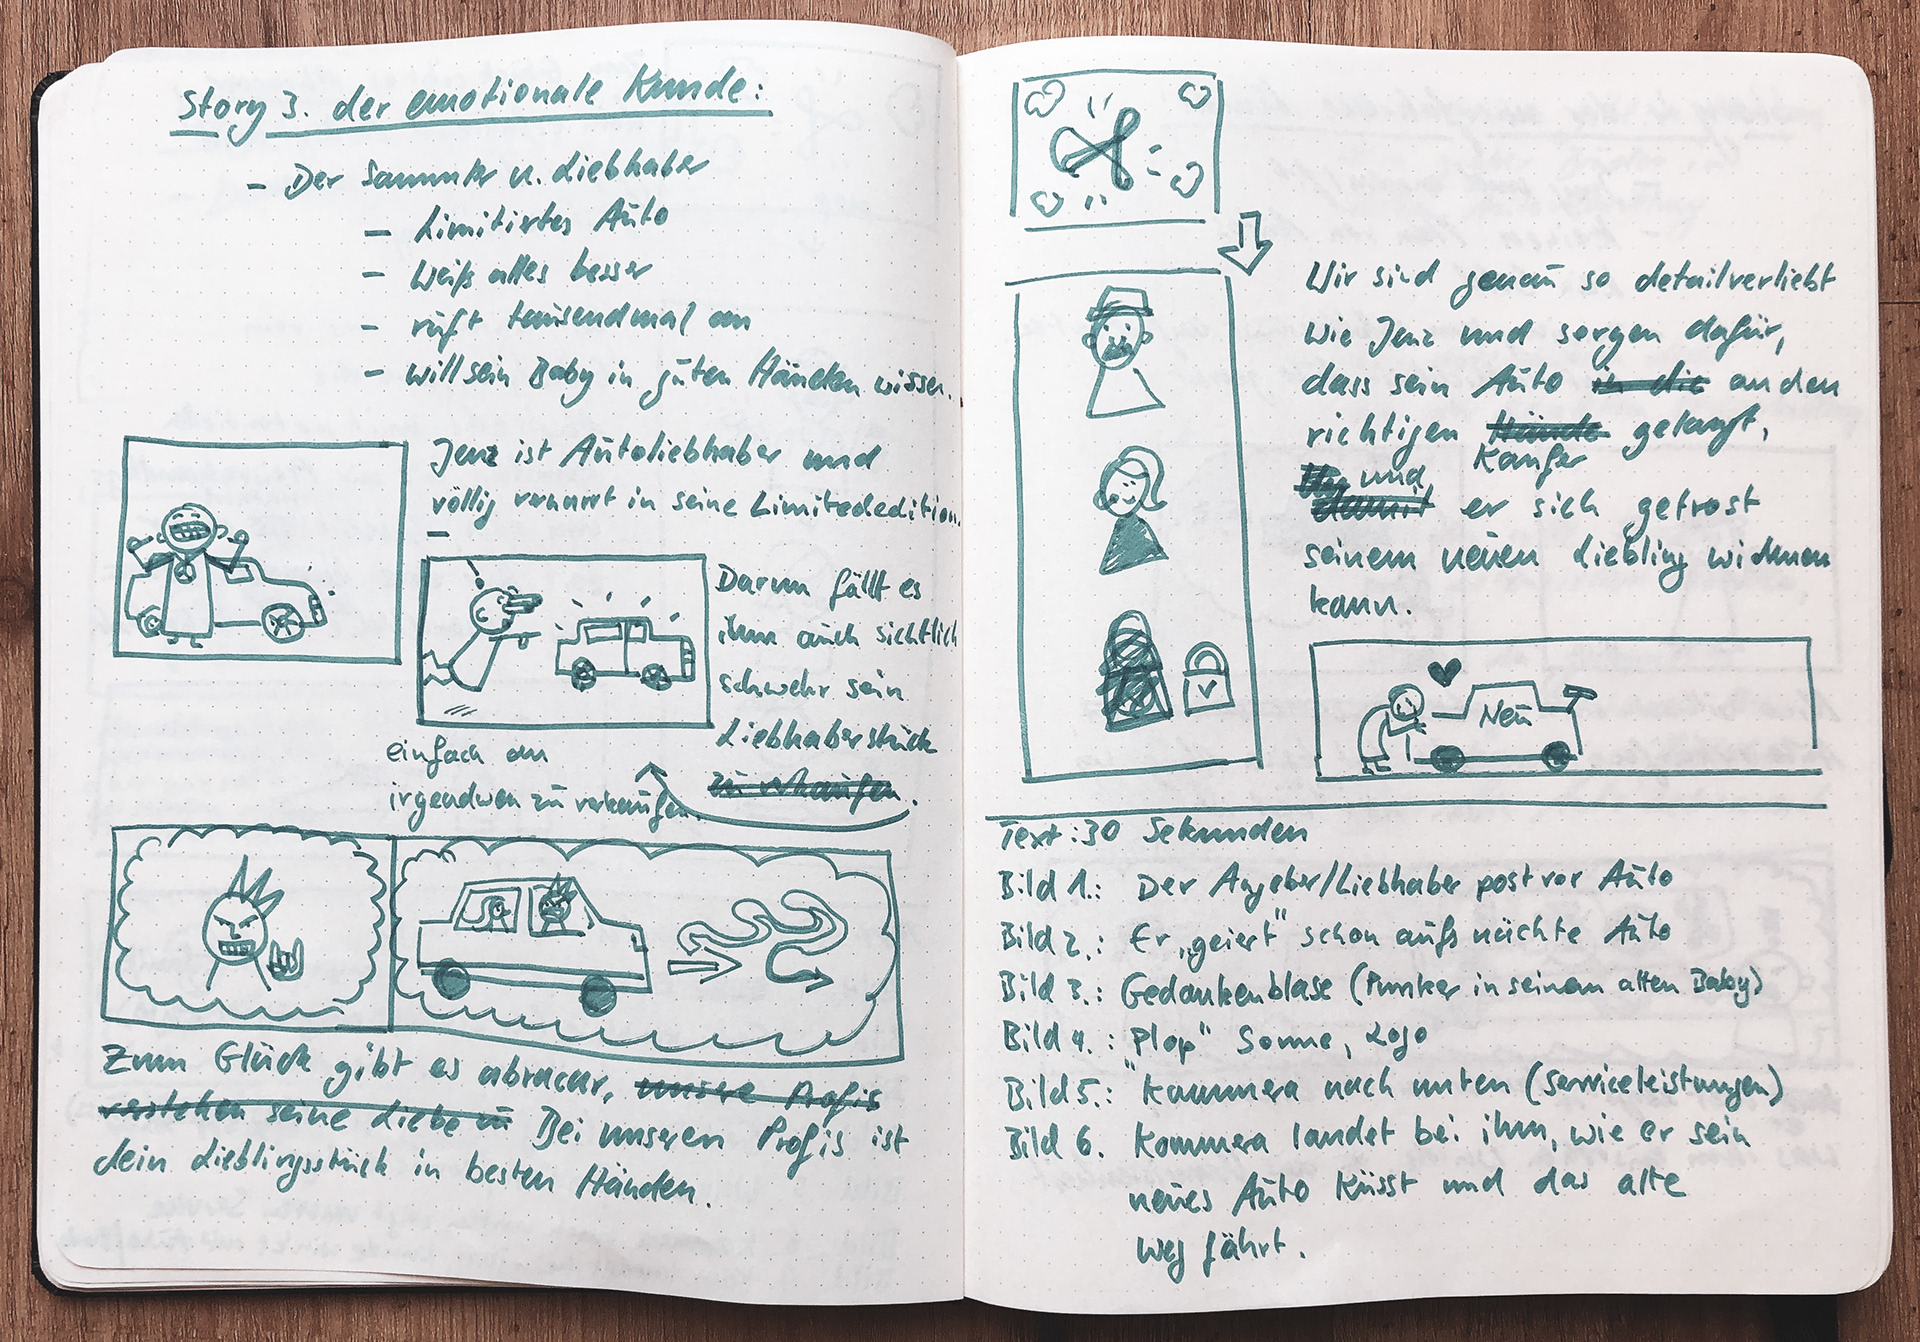 Story 3. der emotionale Kunde:
- Der Sammler u. Liebhaber
- Limitirtes Auto
- Weiß alles besser
- ruft tausendmal an
- will sein Baby in guten Händen wissen.
Jenz ist Autoliebhaber und
völlig vernarrt in seine Limitededition.
Darum fällt es
ihm auch sichtlich
schwehr sein
Liebhaberstück
zu verkaufen.
einfach an
irgendwen zu verkaufen
Zum Glück gibt es abracar, unsre Profis
verstehen seine Liebe u Bei unseren Profis ist
dein Lieblingsstück in besten Händen.
Wir sind genau so detailverliebt
wie Jenz und sorgen dafür,
dass sein Auto in die an den
richtigen Hände gelangt,
Käufer
und
damit er sich getrost
seinem neuen Liebling widmen
kann.
Neu
Text: 30 Sekunden
Bild 1.: Der Angeber/Liebhaber post vor Auto
Bild 2.: Er „geiert" schon aufs nächte Auto
Bild 3.: Gedankenblase (Punker in seinem alten Baby)
Bild 4.: "Plop" Sonne, Logo
Bild 5.: Kammera nach unten (Serviceleistungen)
Bild 6. Kammera landet bei ihm, wie er sein
neues Auto küsst und das alte
weg fährt.